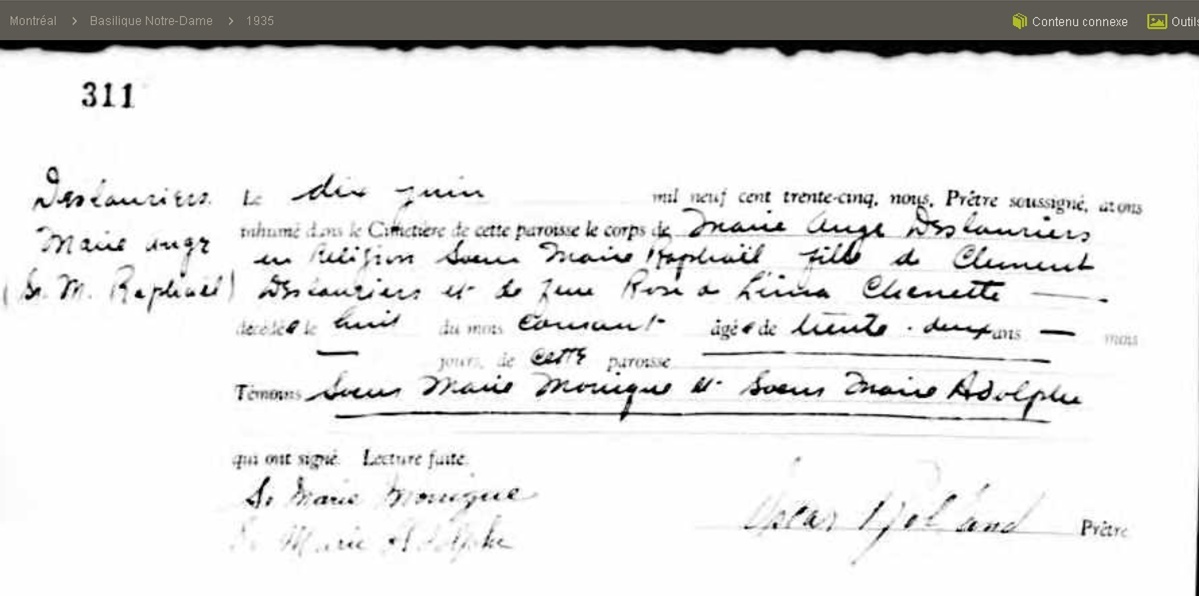 Montréal > Basilique Notre-Dame > 1935
Contenu connexe
Outils
311
Deslauriers
Marie Ange
(Sr. M. Raphaël)
Le dix juin mil neuf cent trente-cinq, nous, Prêtre soussigné, avons
inhumé dans le Cimetière de cette paroisse le corps de Marie Ange Deslauriers
en Religion Soeur Marie Raphaël fille de Clement
Deslauriers et de feue Rose de Lima Chenette
décédée le huit du mois courant âgée de trente-deux ans — mois
— jours, de cette paroisse
Témoins Soeur Marie Monique et Soeur Marie Adolphe
qui ont signé. Lecture faite.
Sr Marie Monique
Sr Marie Adolphe
Oscar Rolland Prêtre